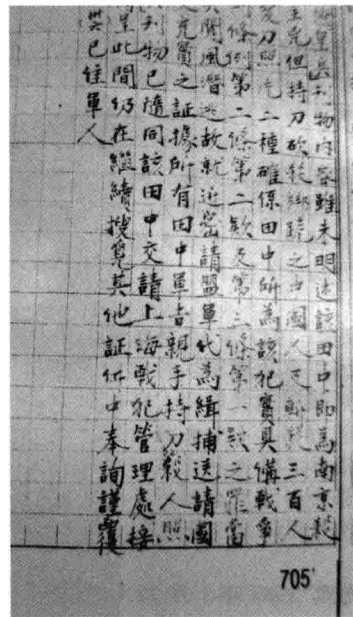 皇兵刊物内容雖未明述該田中即為南京殺
但持刀砍殺綁跪之中國人及斬殺三百人
愛刀照片二種確係田中所為該犯實具備戰爭
條例第二條第二款及第三條第一款之罪當
聞風潛逃故就近密請盟軍代為緝捕逃請國
充實之証據所有田中軍吉親手持刀殺人照
刊物已隨同該田中交請上海戰犯管理處接
此間仍在繼續搜覓其他証件中奉詢謹覆
已往軍人
705